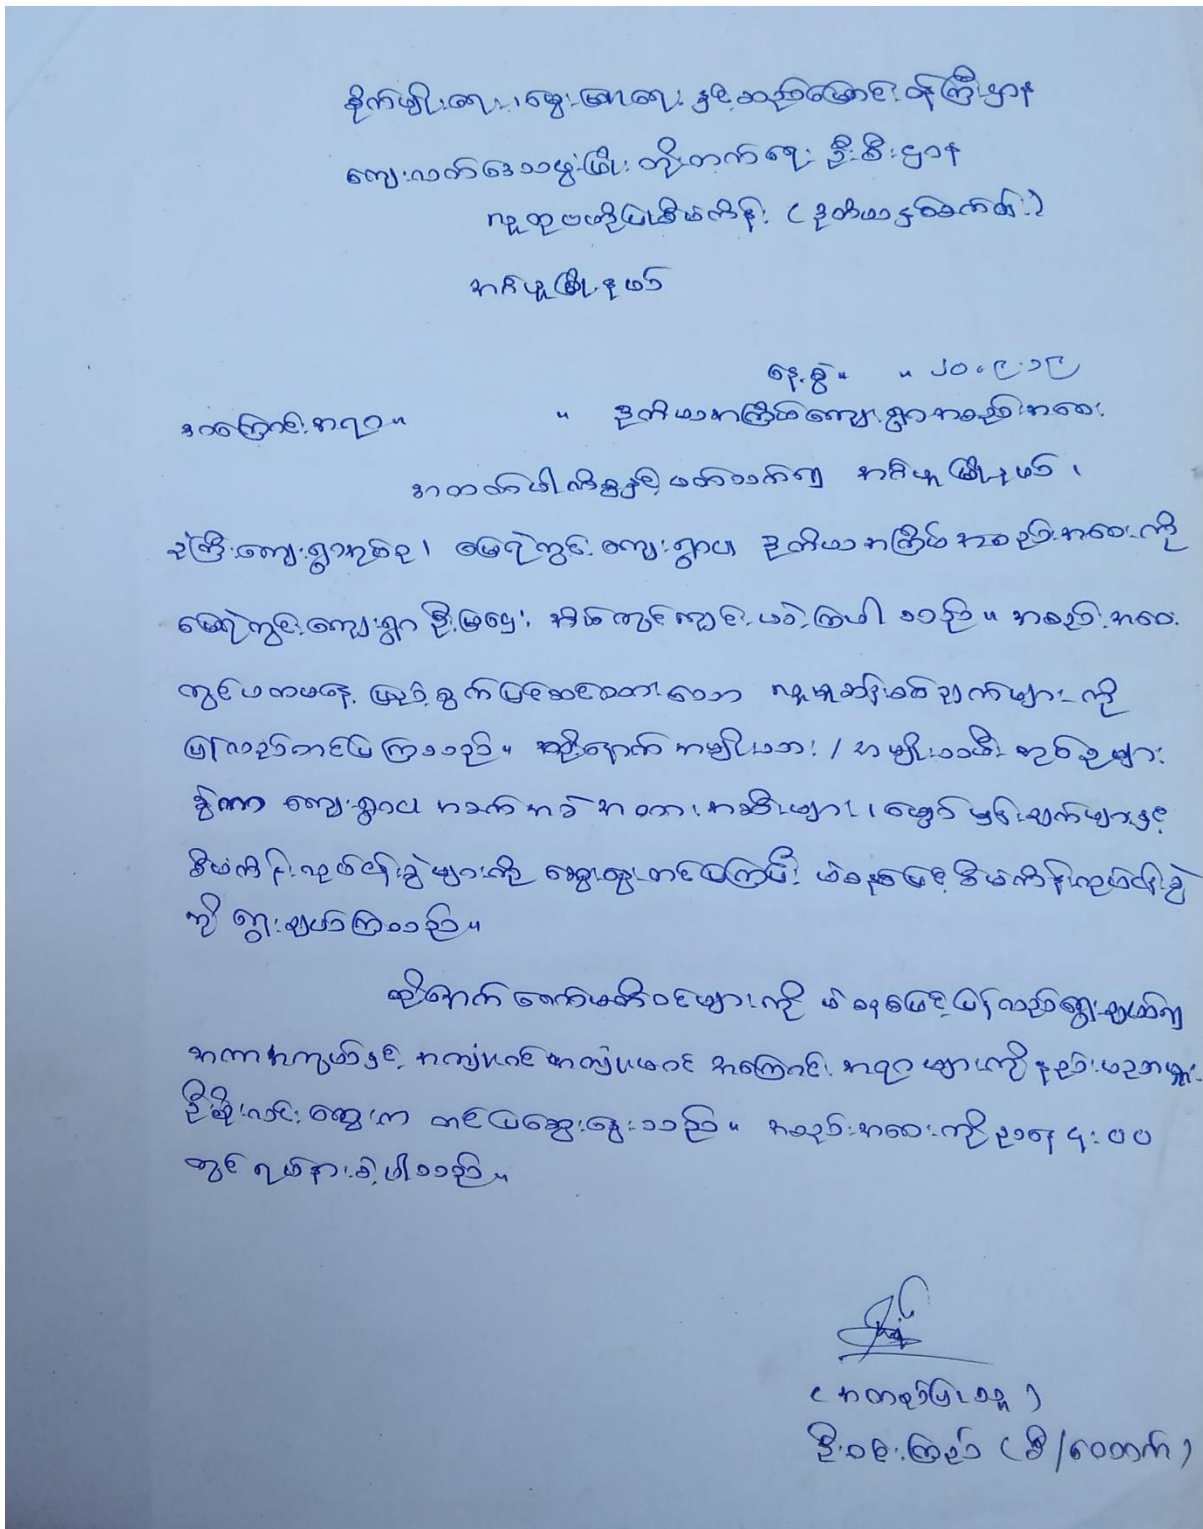 စိုက်ပျိုးရေး၊ မွေးမြူရေး နှင့် ဆည်မြောင်း ဝန်ကြီးဌာန
ကျေးလက်ဒေသဖွံ့ဖြိုး တိုးတက်ရေး ဦးစီးဌာန
လူထုဗဟိုပြုစီမံကိန်း (ဒုတိယနှစ်ပတ်)
အင်္ဂပူမြို့နယ်
နေ့စွဲ။ ။ ၂၀.၉.၁၉
အကြောင်းအရာ။ ။ ဒုတိယအကြိမ်ကျေးရွာအစည်းအဝေး
အထက်ပါကိစ္စနှင့်ပတ်သက်၍ အင်္ဂပူမြို့နယ်၊
ကြီးကျေးရွာအုပ်စု၊ မြေရဲတွင်း ကျေးရွာ၏ ဒုတိယအကြိမ်အစည်းအဝေးကို
မြေရဲတွင်းကျေးရွာ အိမ်တွင်ကျင်းပခဲ့ကြပါသည်။ အစည်းအဝေး
တွင်ပထမနေ့ ပြုစုထွက်ပြင်ဆင်ထားသော လူမှုဆန်းစစ်ချက်များကို
ပြန်လည်တင်ပြကြသည်။ ထို့နောက် အမျိုးသား / အမျိုးသမီး အုပ်စုများ
ခွဲကာ ကျေးရွာ၏ အခက်အခဲ အတားအဆီးများ၊ မျှော်မှန်းချက်များနှင့်
စီမံကိန်းလုပ်ငန်းခွဲများကို ဆွေးနွေးတင်ပြကြပြီး မဲစနစ်ဖြင့် စီမံကိန်းလုပ်ငန်းခွဲ
ကို ရွေးချယ်ကြသည်။
ထို့နောက် ကော်မတီဝင်များကို မဲစနစ်ဖြင့် ပြန်လည်ရွေးချယ်၍
အကာအကွယ်နှင့် အကျုံးဝင် အကျုံးမဝင် အကြောင်းအရာများကို နည်းပညာမှူး
ဦးစိုးလင်းထွေးက တင်ပြဆွေးနွေးသည်။ အစည်းအဝေးကို ညနေ ၄:၀၀
တွင် ရပ်နားခဲ့ပါသည်။
(အတည်ပြုသူ)
ဦးဝင်းကြည် (စီ/ထောက်)